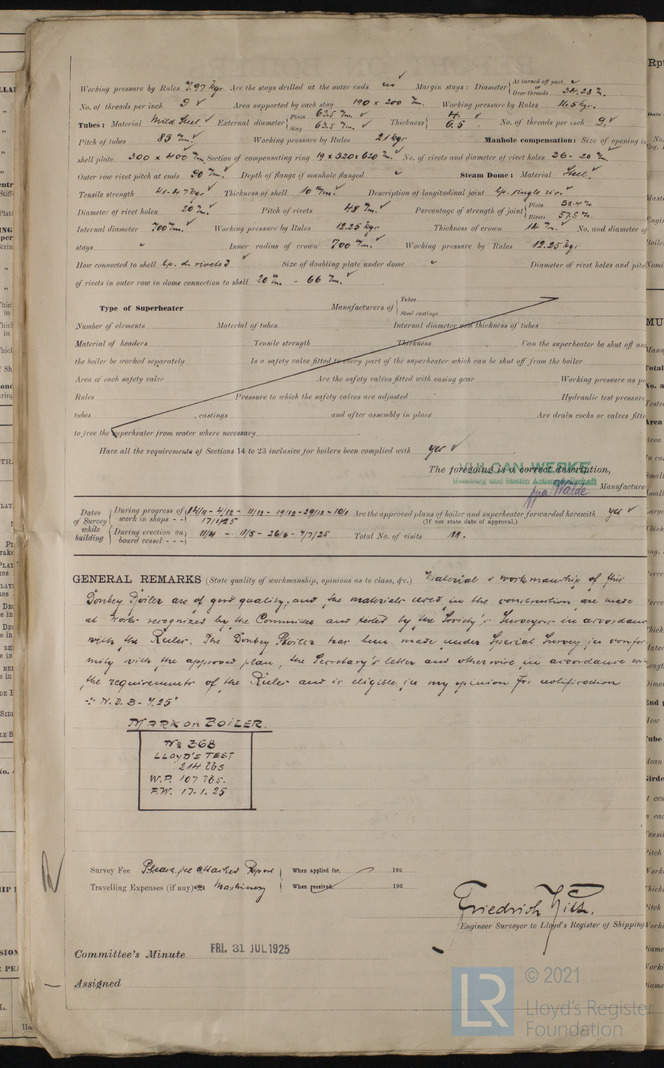 Working pressure by Rules 7.97 kgr. Are the stays drilled at the outer ends no Margin stays: Diameter At turned off part, Over threads 34.28 m.
No. of threads per inch 9 Area supported by each stay 190 x 200 m. Working pressure by Rules 14.5 kgr.
Tubes: Material Mild Steel External diameter Plain 63.5 m. Stay 63.5 m. Thickness 4. 6.5 No. of threads per inch 9
Pitch of tubes 83 m. Working pressure by Rules 21 kgr Manhole compensation: Size of opening in
shell plate 300 x 400 m. Section of compensating ring 19 x 320 x 620 m. No. of rivets and diameter of rivet holes 36 - 20 m.
Outer row rivet pitch at ends 90 m. Depth of flange if manhole flanged Steam Dome: Material Steel.
Tensile strength 41-47 kgr Thickness of shell 10 m. Description of longitudinal joint lp. single riv.
Diameter of rivet holes 20 m. Pitch of rivets 48 m. Percentage of strength of joint Plate 58.4 % Rivets 57.5 %
Internal diameter 700 m. Working pressure by Rules 12.25 kgr. Thickness of crown 14 m. No. and diameter of
stays Inner radius of crown 700 m. Working pressure by Rules 12.25 kgr.
How connected to shell lp. d. riveted Size of doubling plate under dome Diameter of rivet holes and pitch
of rivets in outer row in dome connection to shell 20 m - 66 m.
Type of Superheater Manufacturers of Tubes Steel castings
Number of elements Material of tubes Internal diameter and thickness of tubes
Material of headers Tensile strength Thickness Can the superheater be shut off and
the boiler be worked separately Is a safety valve fitted to every part of the superheater which can be shut off from the boiler
Area of each safety valve Are the safety valves fitted with easing gear Working pressure as per
Rules Pressure to which the safety valves are adjusted Hydraulic test pressure
tubes , castings and after assembly in place Are drain cocks or valves fitted
to free the superheater from water where necessary
Have all the requirements of Sections 14 to 23 inclusive for boilers been complied with yes
VULCAN-WERKE
The foregoing is a correct description,
Hamburg und Stettin Actiengesellschaft
ppa Walde Manufacturer
Dates of Survey while building During progress of work in shops - - 4/12 - 11/12 - 19/12 - 29/12 - 10/1 Are the approved plans of boiler and superheater forwarded herewith yes
17/1/25 (If not state date of approval.)
During erection on board vessel - - - 11/4 - 11/5 - 26/6 - 7/7/25 Total No. of visits 11.
GENERAL REMARKS (State quality of workmanship, opinions as to class, &c.) Material & workmanship of this
Donkey Boiler are of good quality, and the materials used in the construction are made
at Works recognized by the Committee and tested by the Society's Surveyors in accordance
with the Rules. The Donkey Boiler has been made under Special Survey in confor-
mity with the approved plan, the Secretary's letter and otherwise in accordance with
the requirements of the Rules and is eligible in my opinion for notification
N.D.B - 7.25"
MARK on BOILER.
No 368
LLOYD'S TEST
214 lbs
W.P. 107 lbs.
F.W. 17.1.25
Survey Fee Please see attached Report When applied for, 192
Travelling Expenses (if any) on Machinery When received, 192
Friedrich
Engineer Surveyor to Lloyd's Register of Shipping
Committee's Minute FRI. 31 JUL 1925
Assigned
LR
© 2021
Lloyd's Register
Foundation